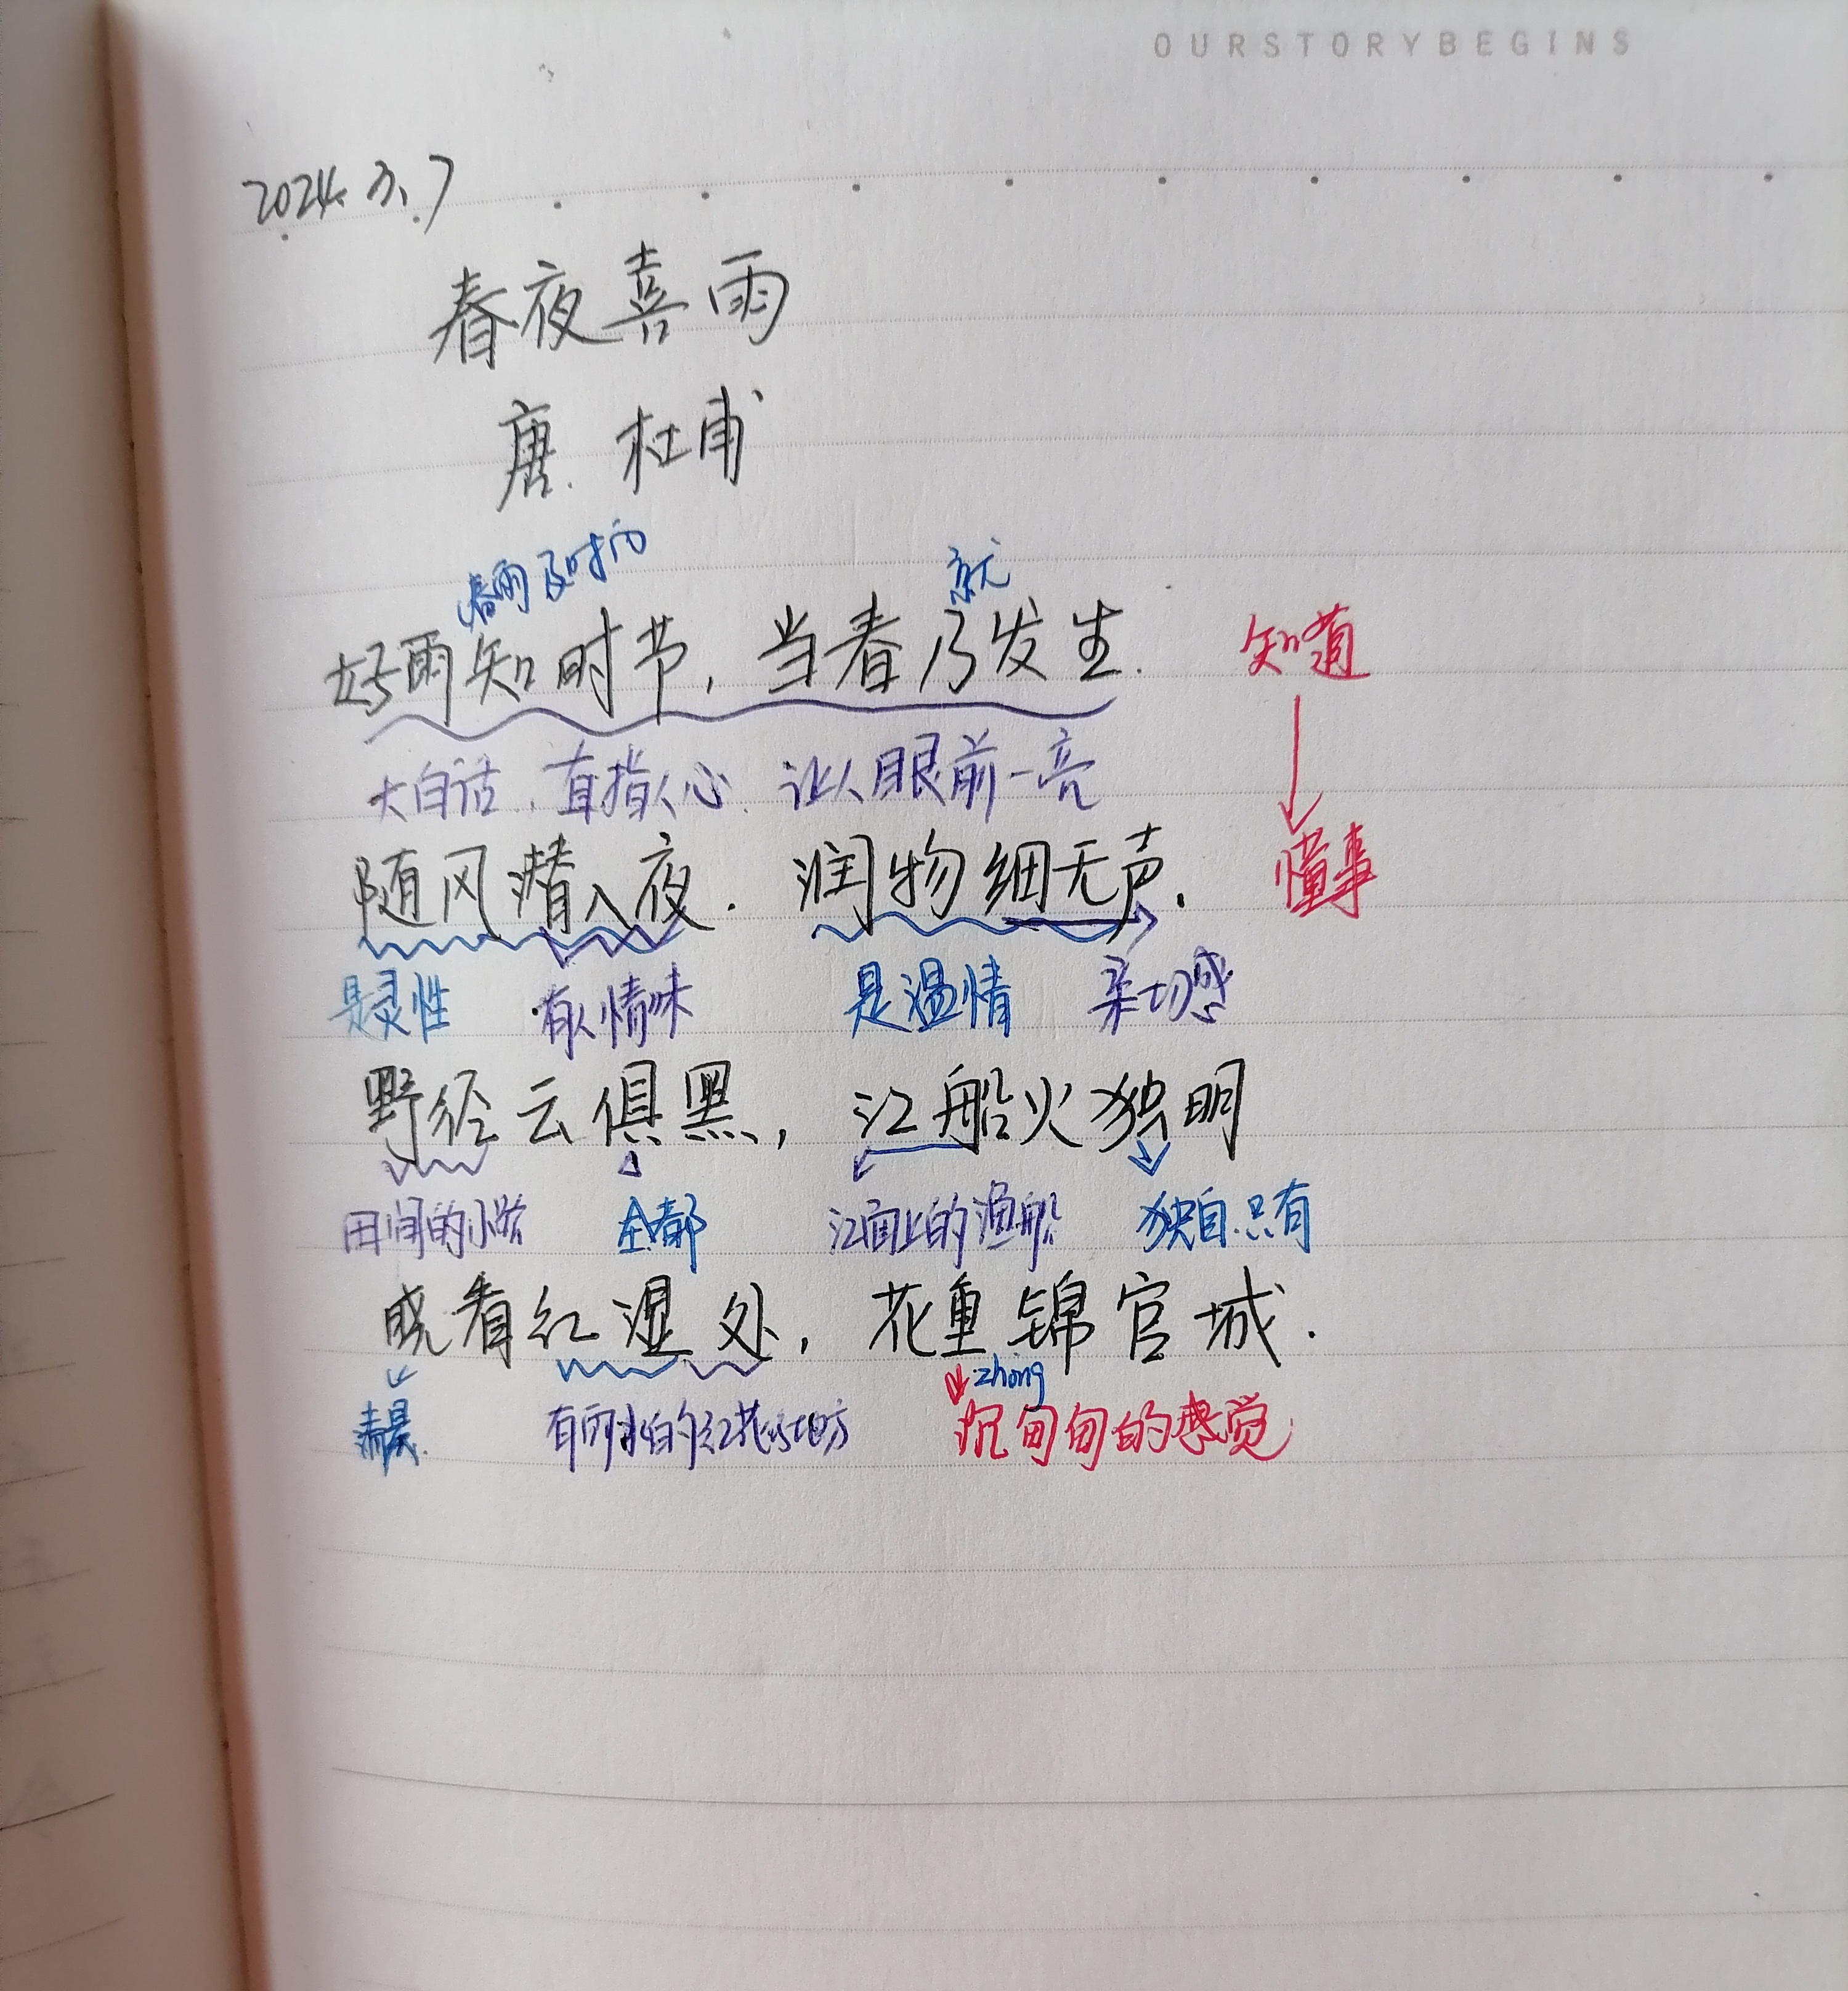 OURSTORYBEGINS
2024.3.7
春夜喜雨
唐.杜甫
春雨及时雨 就
好雨知时节,当春乃发生. 知道
大白话.直指人心.让人眼前一亮
随风潜入夜.润物细无声. 懂事
是灵性 有人情味 是温情 亲切感
野径云俱黑,江船火独明
田间的小路 全都 江面上的渔船 独自.只有
晓看红湿处,花重锦官城.
zhong
清晨. 有雨水的红花的地方 沉甸甸的感觉